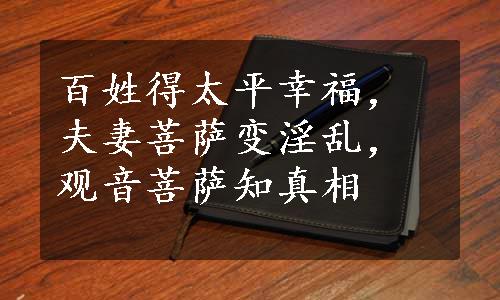 百姓得太平幸福，
夫妻菩萨变淫乱，
观音菩萨知真相